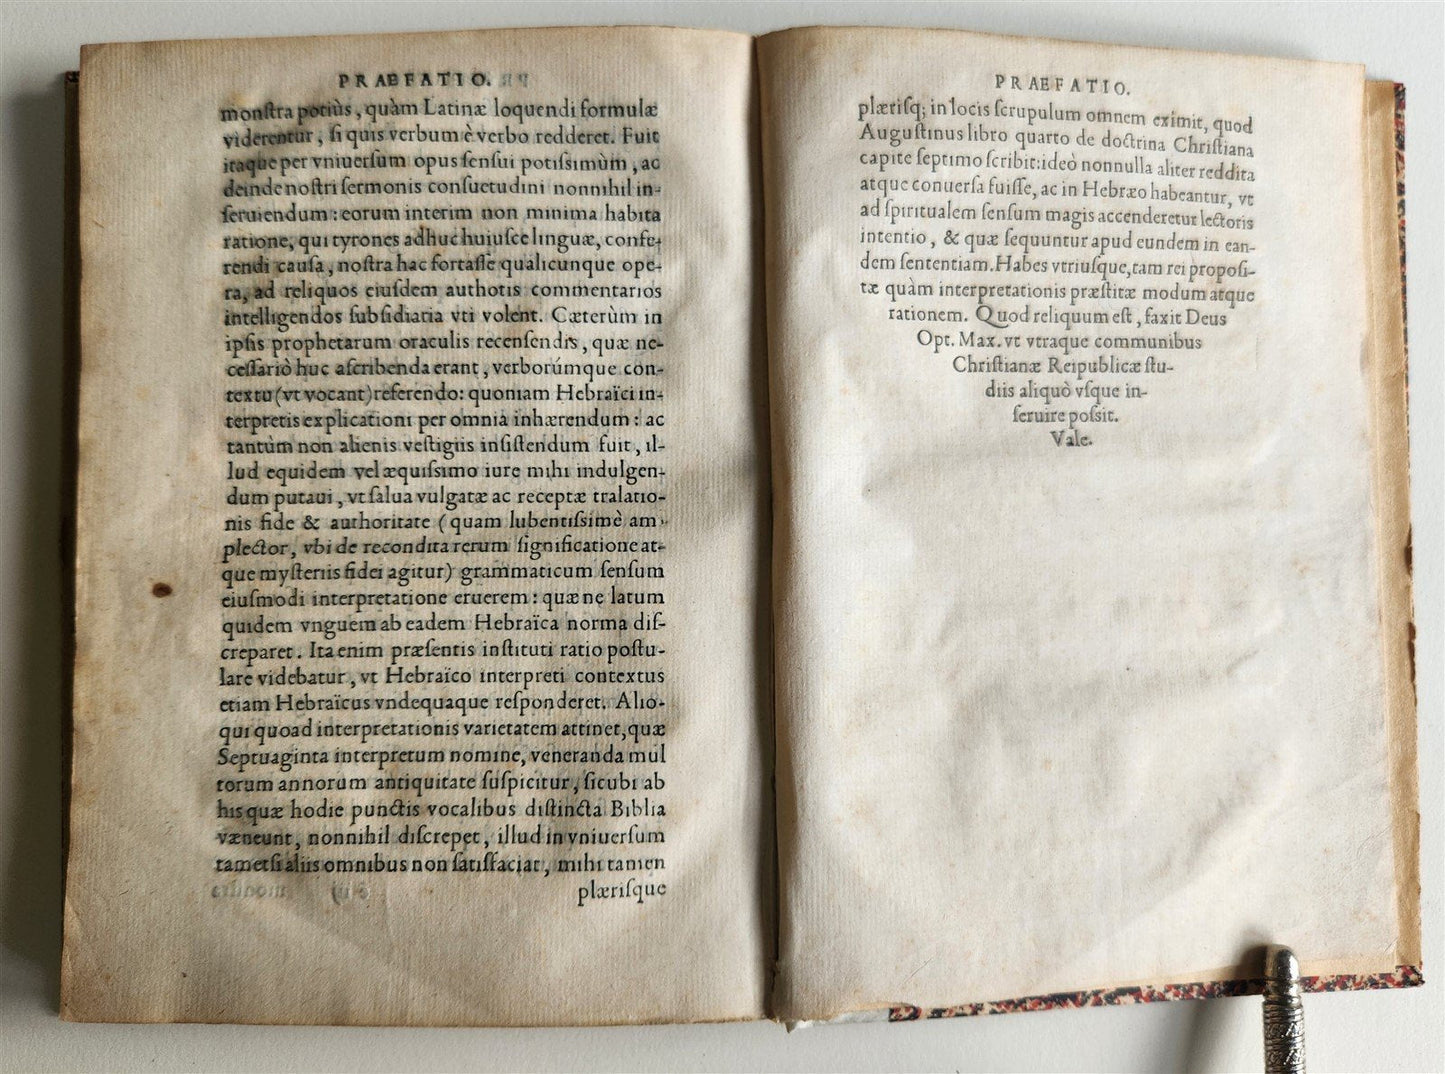 PRAEFATIO.
monſtra potiùs, quàm Latinæ loquendi formulæ
viderentur, ſi quis verbum è verbo redderet. Fuit
itaque per vniuerſum opus ſenſui potiſſimùm, ac
deinde noſtri ſermonis conſuetudini nonnihil in-
ſeruiendum: eorum interim non minima habita
ratione, qui tyrones adhuc huiuſce linguæ, confe-
rendi cauſa, noſtra hac fortaſſe qualicunque ope-
ra, ad reliquos eiuſdem authoris commentarios
intelligendos ſubſidiaria vti volent. Cæterùm in
ipſis prophetarum oraculis recenſendis, quæ ne-
ceſſariò huc aſcribenda erant, verborúmque con-
textu (vt vocant) referendo: quoniam Hebraïci in-
terpretis explicationi per omnia inhærendum: ac
tantùm non alienis veſtigiis inſiſtendum fuit, il-
lud equidem vel æquiſsimo iure mihi indulgen-
dum putaui, vt ſalua vulgatæ ac receptæ tralatio-
nis fide & authoritate (quam lubentiſsimè am-
plector, vbi de recondita rerum ſignificatione at-
que myſteriis fidei agitur) grammaticum ſenſum
eiuſmodi interpretatione eruerem: quæ ne latum
quidem vnguem ab eadem Hebraïca norma diſ-
creparet. Ita enim præſentis inſtituti ratio poſtu-
lare videbatur, vt Hebraïco interpreti contextus
etiam Hebraïcus vndequaque reſponderet. Alio-
qui quoad interpretationis varietatem attinet, quæ
Septuaginta interpretum nomine, veneranda mul
torum annorum antiquitate ſuſpicitur, ſicubi ab
his quæ hodie punctis vocalibus diſtincta Biblia
væneunt, nonnihil diſcrepet, illud in vniuerſum
tametſi aliis omnibus non ſatisfaciat, mihi tamen
plæriſque
PRAEFATIO.
plæriſq; in locis ſcrupulum omnem eximit, quod
Auguſtinus libro quarto de doctrina Chriſtiana
capite ſeptimo ſcribit: ideò nonnulla aliter reddita
atque conuerſa fuiſſe, ac in Hebræo habeantur, vt
ad ſpiritualem ſenſum magis accenderetur lectoris
intentio, & quæ ſequuntur apud eundem in ean-
dem ſententiam. Habes vtriuſque, tam rei propoſi-
tæ quàm interpretationis præſtitæ modum atque
rationem. Quod reliquum eſt, faxit Deus
Opt. Max. vt vtraque communibus
Chriſtianæ Reipublicæ ſtu-
diis aliquò vſque in-
ſeruire poſsit.
Vale.